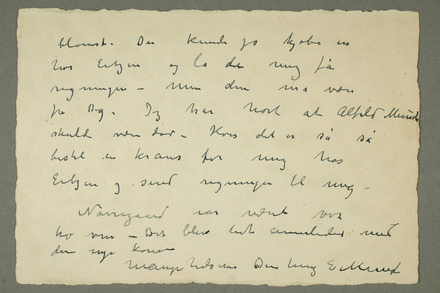 blomst. Du kunde jo kjøbe en
hos Erbgen og la dem mig få
regningen – men den må være
fra Dig. Jeg har hørt at Alfild Munch
skulde være død – Hvis det er så så
bestil en krans for mig hos
Erbgen og send regningen til mig –
Nørregaard var vor
ven – Det blev lidt anderledes med
den nye kone
mange hilsener Din heng E Munch